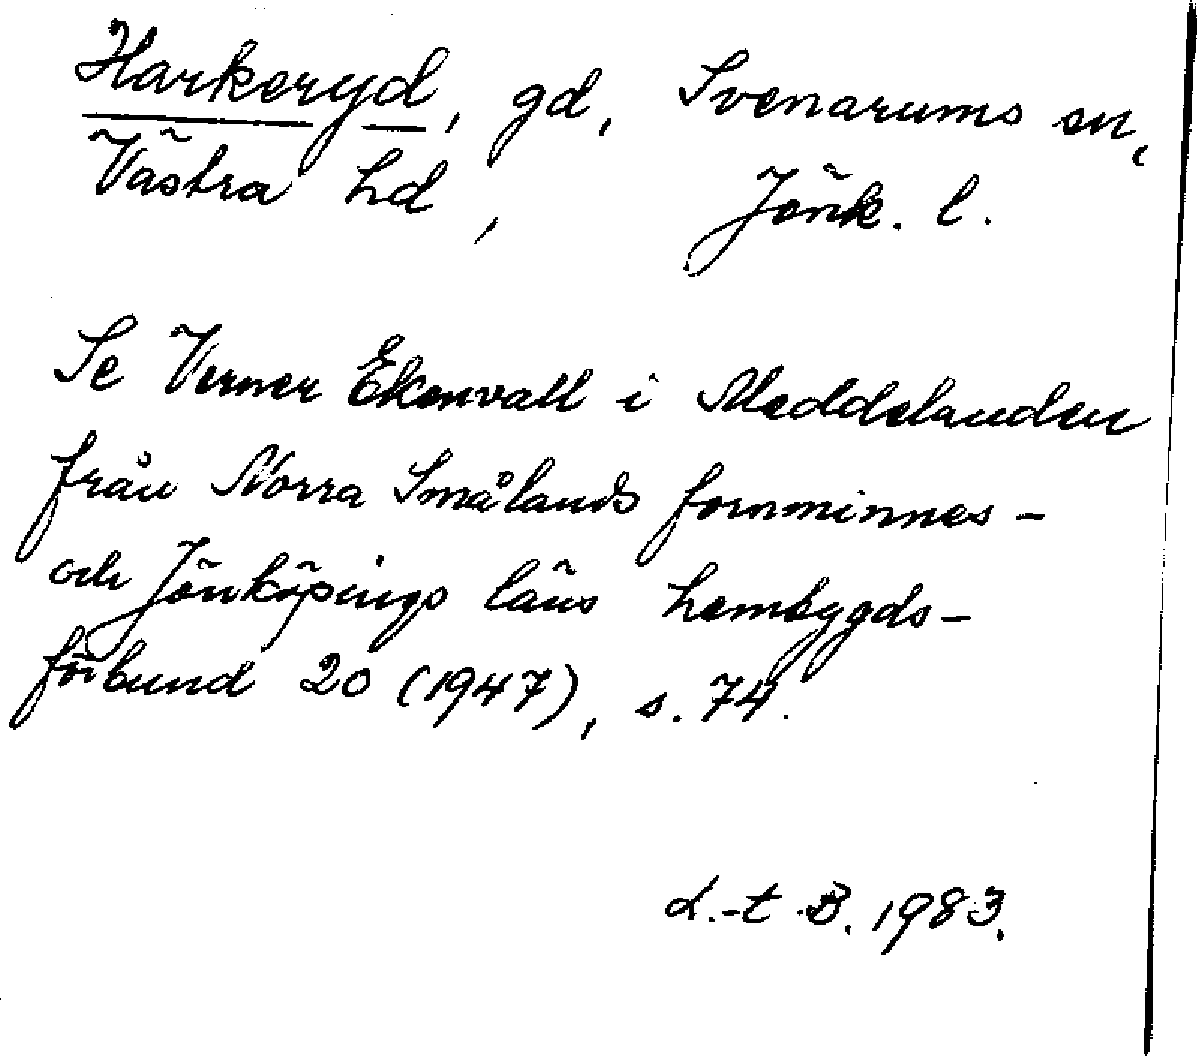 Harkeryd, gd, Svenarums sn,
Västra hd, Jönk. l.
Se Verner Ekenvall i Meddelanden
från Norra Smålands fornminnes-
och Jönköpings läns hembygds-
förbund 20 (1947), s. 74.
L.-t B. 1983.